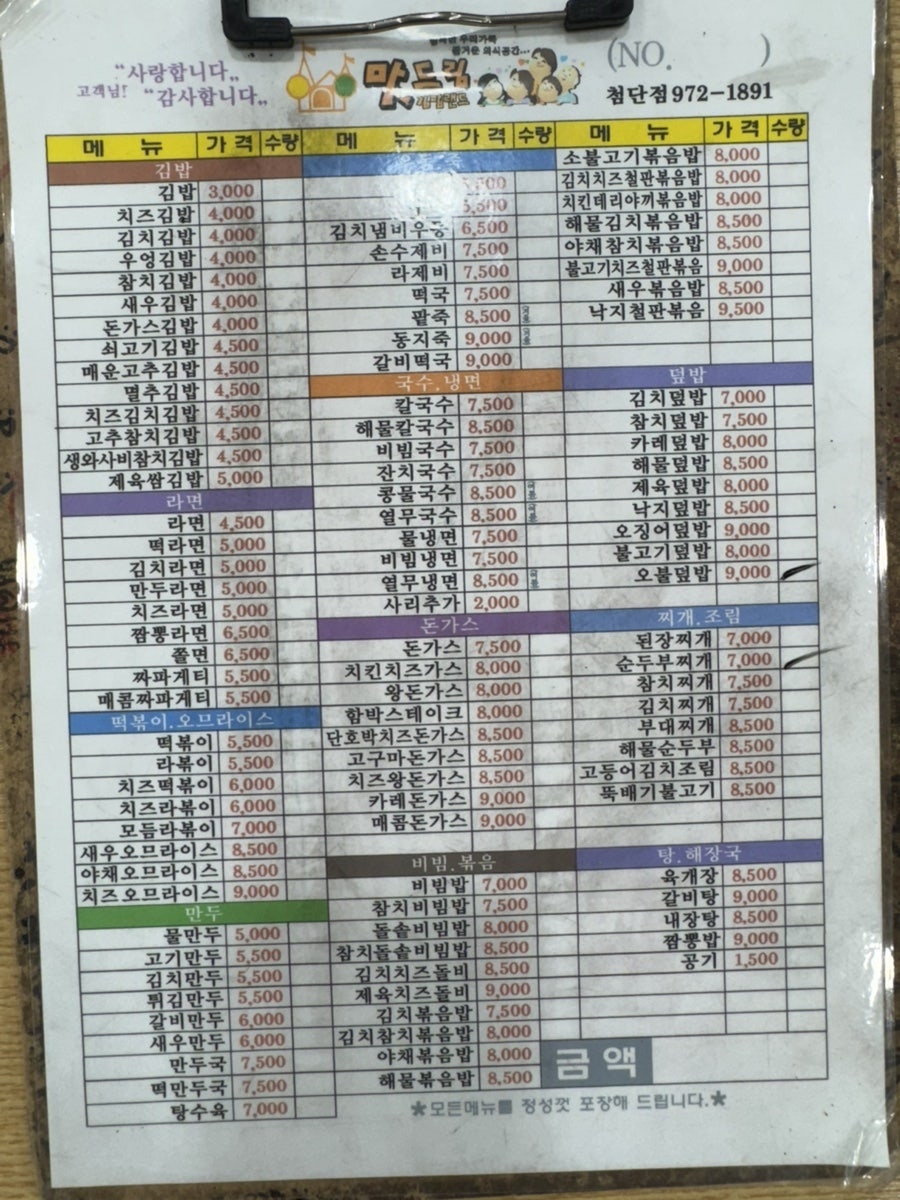 "사랑합니다„
고객님! "감사합니다„
즐거운 외식공간...
맛드림
김밥랜드
(NO. )
첨단점 972-1891
메 뉴 가 격 수량
김밥
김밥 3,000
치즈김밥 4,000
김치김밥 4,000
우엉김밥 4,000
참치김밥 4,000
새우김밥 4,000
돈가스김밥 4,000
쇠고기김밥 4,500
매운고추김밥 4,500
멸추김밥 4,500
치즈김치김밥 4,500
고추참치김밥 4,500
생와사비참치김밥 4,500
제육쌈김밥 5,000
라면
라면 4,500
떡라면 5,000
김치라면 5,000
만두라면 5,000
치즈라면 5,000
짬뽕라면 6,500
쫄면 6,500
짜파게티 5,500
매콤짜파게티 5,500
떡볶이.오므라이스
떡볶이 5,500
라볶이 5,500
치즈떡볶이 6,000
치즈라볶이 6,000
모듬라볶이 7,000
새우오므라이스 8,500
야채오므라이스 8,500
치즈오므라이스 9,000
만두
물만두 5,000
고기만두 5,500
김치만두 5,500
튀김만두 5,500
갈비만두 6,000
새우만두 6,000
만두국 7,500
떡만두국 7,500
탕수육 7,000
메 뉴 가 격 수량
5,500
김치냄비우동 6,500
손수제비 7,500
라제비 7,500
떡국 7,500
팥죽 8,500
동지죽 9,000
갈비떡국 9,000
국수.냉면
칼국수 7,500
해물칼국수 8,500
비빔국수 7,500
잔치국수 7,500
콩물국수 8,500
열무국수 8,500
물냉면 7,500
비빔냉면 7,500
열무냉면 8,500
사리추가 2,000
돈가스
돈가스 7,500
치킨치즈가스 8,000
왕돈가스 8,000
함박스테이크 8,000
단호박치즈돈가스 8,500
고구마돈가스 8,500
치즈왕돈가스 8,500
카레돈가스 9,000
매콤돈가스 9,000
비빔.볶음
비빔밥 7,000
참치비빔밥 7,500
돌솥비빔밥 8,000
참치돌솥비빔밥 8,500
김치치즈돌비 8,500
제육치즈돌비 9,000
김치볶음밥 7,500
김치참치볶음밥 8,000
야채볶음밥 8,000
해물볶음밥 8,500
메 뉴 가 격 수량
소불고기볶음밥 8,000
김치치즈철판볶음밥 8,000
치킨데리야끼볶음밥 8,000
해물김치볶음밥 8,500
야채참치볶음밥 8,500
불고기치즈철판볶음 9,000
새우볶음밥 8,500
낙지철판볶음 9,500
덮밥
김치덮밥 7,000
참치덮밥 7,500
카레덮밥 8,000
해물덮밥 8,500
제육덮밥 8,000
낙지덮밥 8,500
오징어덮밥 9,000
불고기덮밥 8,000
오불덮밥 9,000
찌개.조림
된장찌개 7,000
순두부찌개 7,000
참치찌개 7,500
김치찌개 7,500
부대찌개 8,500
해물순두부 8,500
고등어김치조림 8,500
뚝배기불고기 8,500
탕.해장국
육개장 8,500
갈비탕 9,000
내장탕 8,500
짬뽕밥 9,000
공기 1,500
금 액
★모든메뉴를 정성껏 포장해 드립니다.★